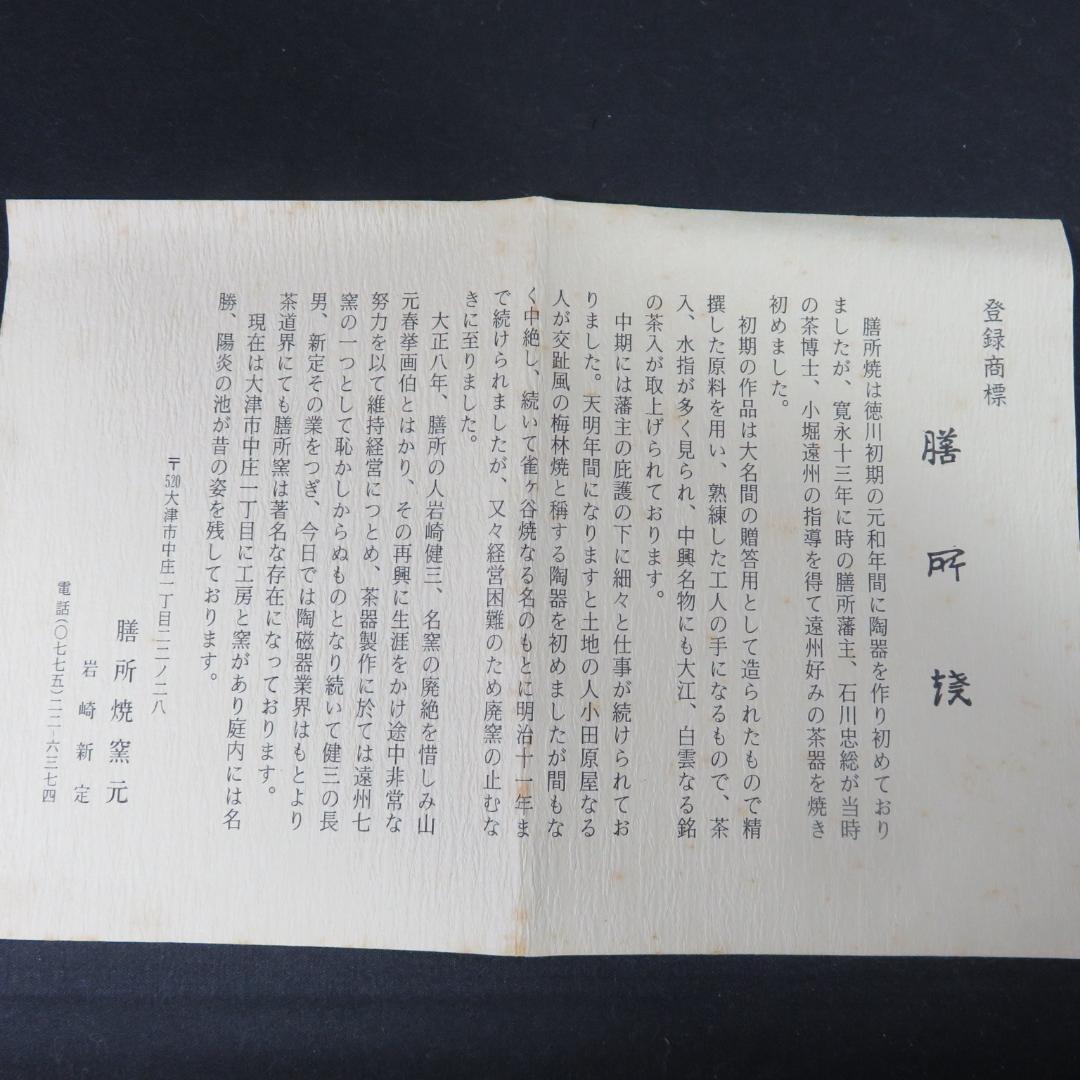 登録商標
膳所焼
膳所焼は徳川初期の元和年間に陶器を作り初めており
ましたが、寛永十三年に時の膳所藩主、石川忠総が当時
の茶博士、小堀遠州の指導を得て遠州好みの茶器を焼き
初めました。
初期の作品は大名間の贈答用として造られたもので精
撰した原料を用い、熟練した工人の手になるもので、茶
入、水指が多く見られ、中興名物にも大江、白雲なる銘
の茶入が取上げられております。
中期には藩主の庇護の下に細々と仕事が続けられてお
りました。天明年間になりますと土地の人小田原屋なる
人が交趾風の梅林焼と稱する陶器を初めましたが間もな
く中絶し、続いて雀ヶ谷焼なる名のもとに明治十一年ま
で続けられましたが、又々経営困難のため廃窯の止むな
きに至りました。
大正八年、膳所の人岩崎健三、名窯の廃絶を惜しみ山
元春挙画伯とはかり、その再興に生涯をかけ途中非常な
努力を以て維持経営につとめ、茶器製作に於ては遠州七
窯の一つとして恥かしからぬものとなり続いて健三の長
男、新定その業をつぎ、今日では陶磁器業界はもとより
茶道界にても膳所窯は著名な存在になっております。
現在は大津市中庄一丁目に工房と窯があり庭内には名
勝、陽炎の池が昔の姿を残しております。
〒520大津市中庄一丁目二二ノ二八
膳所焼窯元
岩崎新定
電話(〇七七五)二二-六三七四